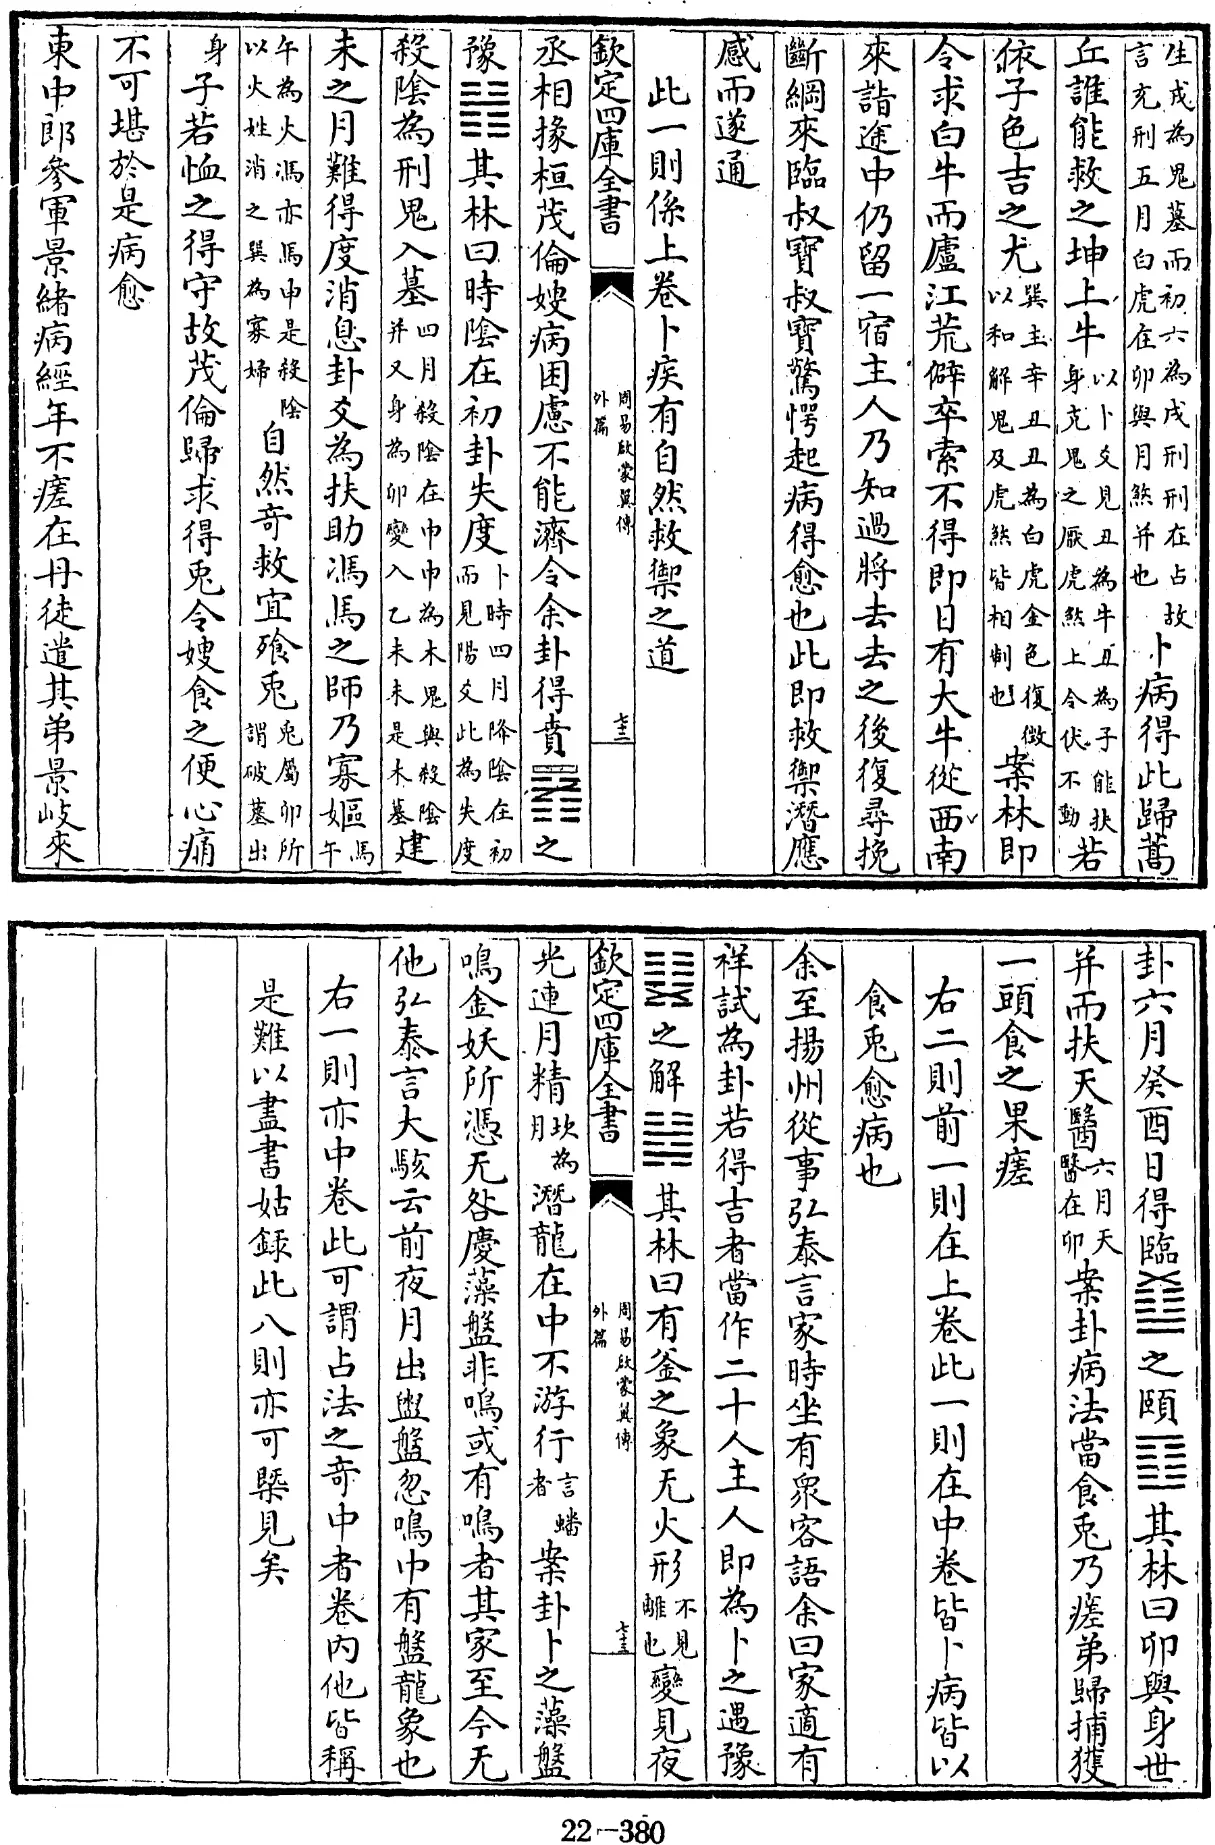 生戌為鬼墓而初六為戌刑刑在占故言充刑五月白虎在卯與月煞并也卜病得此歸蒿
丘誰能救之坤上牛以卜爻見丑為牛丑為子能扶身克鬼之厭虎煞上令伏不動若
依子色吉之尤巽主辛丑丑為白虎金色復徵以和解鬼及虎煞皆相制也案林即
令求白牛而廬江荒僻卒索不得即日有大牛從西南
來詣途中仍留一宿主人乃知過將去去之後復尋挽
斷綱來臨叔寶叔寶驚愕起病得愈也此即救禦潛應
感而遂通
此一則係上卷卜疾有自然救禦之道
欽定四庫全書
周易啟蒙翼傳
外篇
七十二
丞相掾桓茂倫嫂病困慮不能濟令余卦得賁䷕之
豫䷏其林曰時陰在初卦失度卜時四月降陰在初而見陽爻此為失度
殺陰為刑鬼入墓四月殺陰在巾巾為木鬼與殺陰并又身為卯變入乙未未是木墓建
未之月難得度消息卦爻為扶助馮馬之師乃寡嫗馬午
午為火馮亦馬申是殺陰以火姓消之巽為寡婦自然奇救宜飱兎兎屬卯所謂破墓出
身子若恤之得守故茂倫歸求得兎令嫂食之便心痛
不可堪於是病愈
東中郎參軍景緒病經年不瘥在丹徒遣其弟景岐來
卦六月癸酉日得臨䷒之頤䷚其林曰卯與身世
并而扶天醫六月天醫在卯案卦病法當食兎乃瘥弟歸捕獲
一頭食之果瘥
右二則前一則在上卷此一則在中卷皆卜病皆以
食兎愈病也
余至揚州從事弘泰言家時坐有衆客語余曰家適有
祥試為卦若得吉者當作二十人主人即為卜之遇豫
䷏之解䷧其林曰有釜之象无火形不見離也變見夜
欽定四庫全書
周易啟蒙翼傳
外篇
七十三
光連月精坎為月潛龍在中不游行言蟠者案卦卜之藻盤
鳴金妖所憑无咎慶藻盤非鳴或有鳴者其家至今无
他弘泰言大駭云前夜月出盥盤忽鳴中有盤龍象也
右一則亦中卷此可謂占法之奇中者卷内他皆稱
是難以盡書姑録此八則亦可槩見矣
22-380